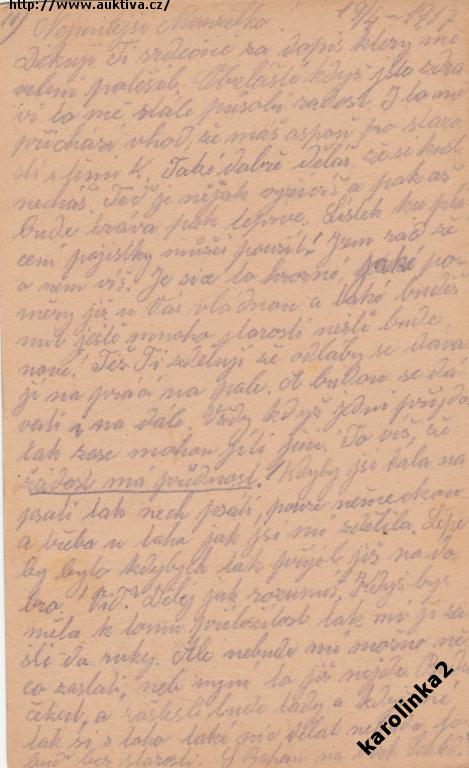 http://www.auktiva.cz/
19/4 - 1917
Nejmilejší Manželko!
Děkuji Ti srdečně za dopis který mě
velmi potěšil. Obzláště když jste zdra
vi to mě stále působí radost. I to mě
přichází vhod, že máš aspoň po staro
sti s K. Také dobře děláš že si
necháš. Teď je nějak a pak až
bude tráva pak teprve. Lístek ku pla
cení pojistky můžeš použít! Jsem rád že
o něm víš. Je sice to hrozné, jaké po
měry již u Vás vládnou a také budeš
mít ještě mnoho starosti nežli bude
nové! Též Ti zděluji že odtaby se dáva
jí na práci na pole. A budou se dá
vati i na dále. Vždy když jedni přijdo
tak zase mohou jíti jiní. To víš, že
žádost má přednost. Kdyby jsi dala na
psati tak nech psáti, pouze německou
a třeba u toho jak jsi mi zdělila. Lépe
by bylo kdybych tak přijel již na do
bro! Viď? Dělej jak rozumíš. Když bys
měla k tomu příležitost tak mi ji za
šli do ruky. Ale nebude mi možno ně
co zaslati, neb nyní to již nejde.
čekat, a bude tády a
tak si z toho také nic dělat
buď bez starosti. S Bohem na
karolinka2